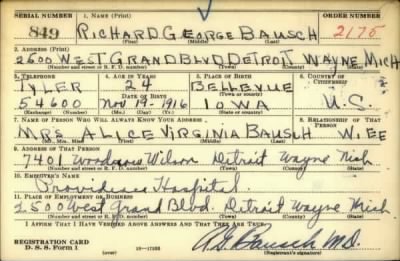 SERIAL NUMBER 1. NAME (Print) ORDER NUMBER
849 RICHARD GEORGE BAUSCH 2175
(First) (Middle) (Last)
2. ADDRESS (Print)
2500 WEST GRAND BLVD DETROIT WAYNE MICH
(Number and street or R. F. D. number) (Town) (County) (State)
3. TELEPHONE 4. AGE IN YEARS 5. PLACE OF BIRTH 6. COUNTRY OF CITIZENSHIP
TYLER 24 BELLEVUE
DATE OF BIRTH (Town or county)
54600 NOV 19-1916 IOWA U.S.
(Exchange) (Number) (Mo.) (Day) (Yr.) (State or country)
7. NAME OF PERSON WHO WILL ALWAYS KNOW YOUR ADDRESS 8. RELATIONSHIP OF THAT PERSON
MRS ALICE VIRGINIA BAUSCH WIFE
(Mr., Mrs., Miss) (First) (Middle) (Last)
9. ADDRESS OF THAT PERSON
7401 Woodrow Wilson Detroit Wayne Mich
(Number and street or R. F. D. number) (Town) (County) (State)
10. EMPLOYER'S NAME
Providence Hospital
11. PLACE OF EMPLOYMENT OR BUSINESS
2500 West Grand Blvd. Detroit Wayne Mich
(Number and street or R. F. D. number) (Town) (County) (State)
I AFFIRM THAT I HAVE VERIFIED ABOVE ANSWERS AND THAT THEY ARE TRUE.
REGISTRATION CARD
D. S. S. Form 1 16—17105 R G Bausch M.D.
(Registrant's signature)